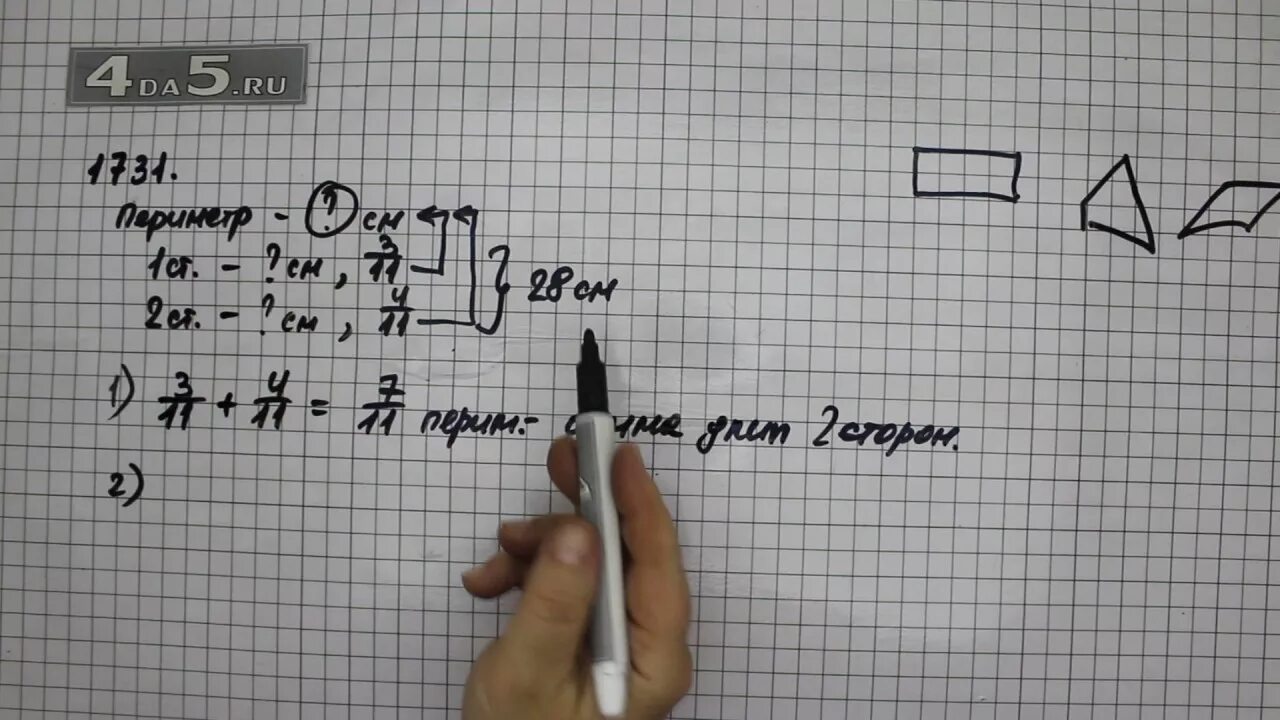 4DA5.RU
1731.
Периметр - ? см
1ст. - ? см, 3/11
2ст. - ? см, 4/11
28 см
1) 3/11 + 4/11 = 7/11 перим. - длин 2 сторон.
2)